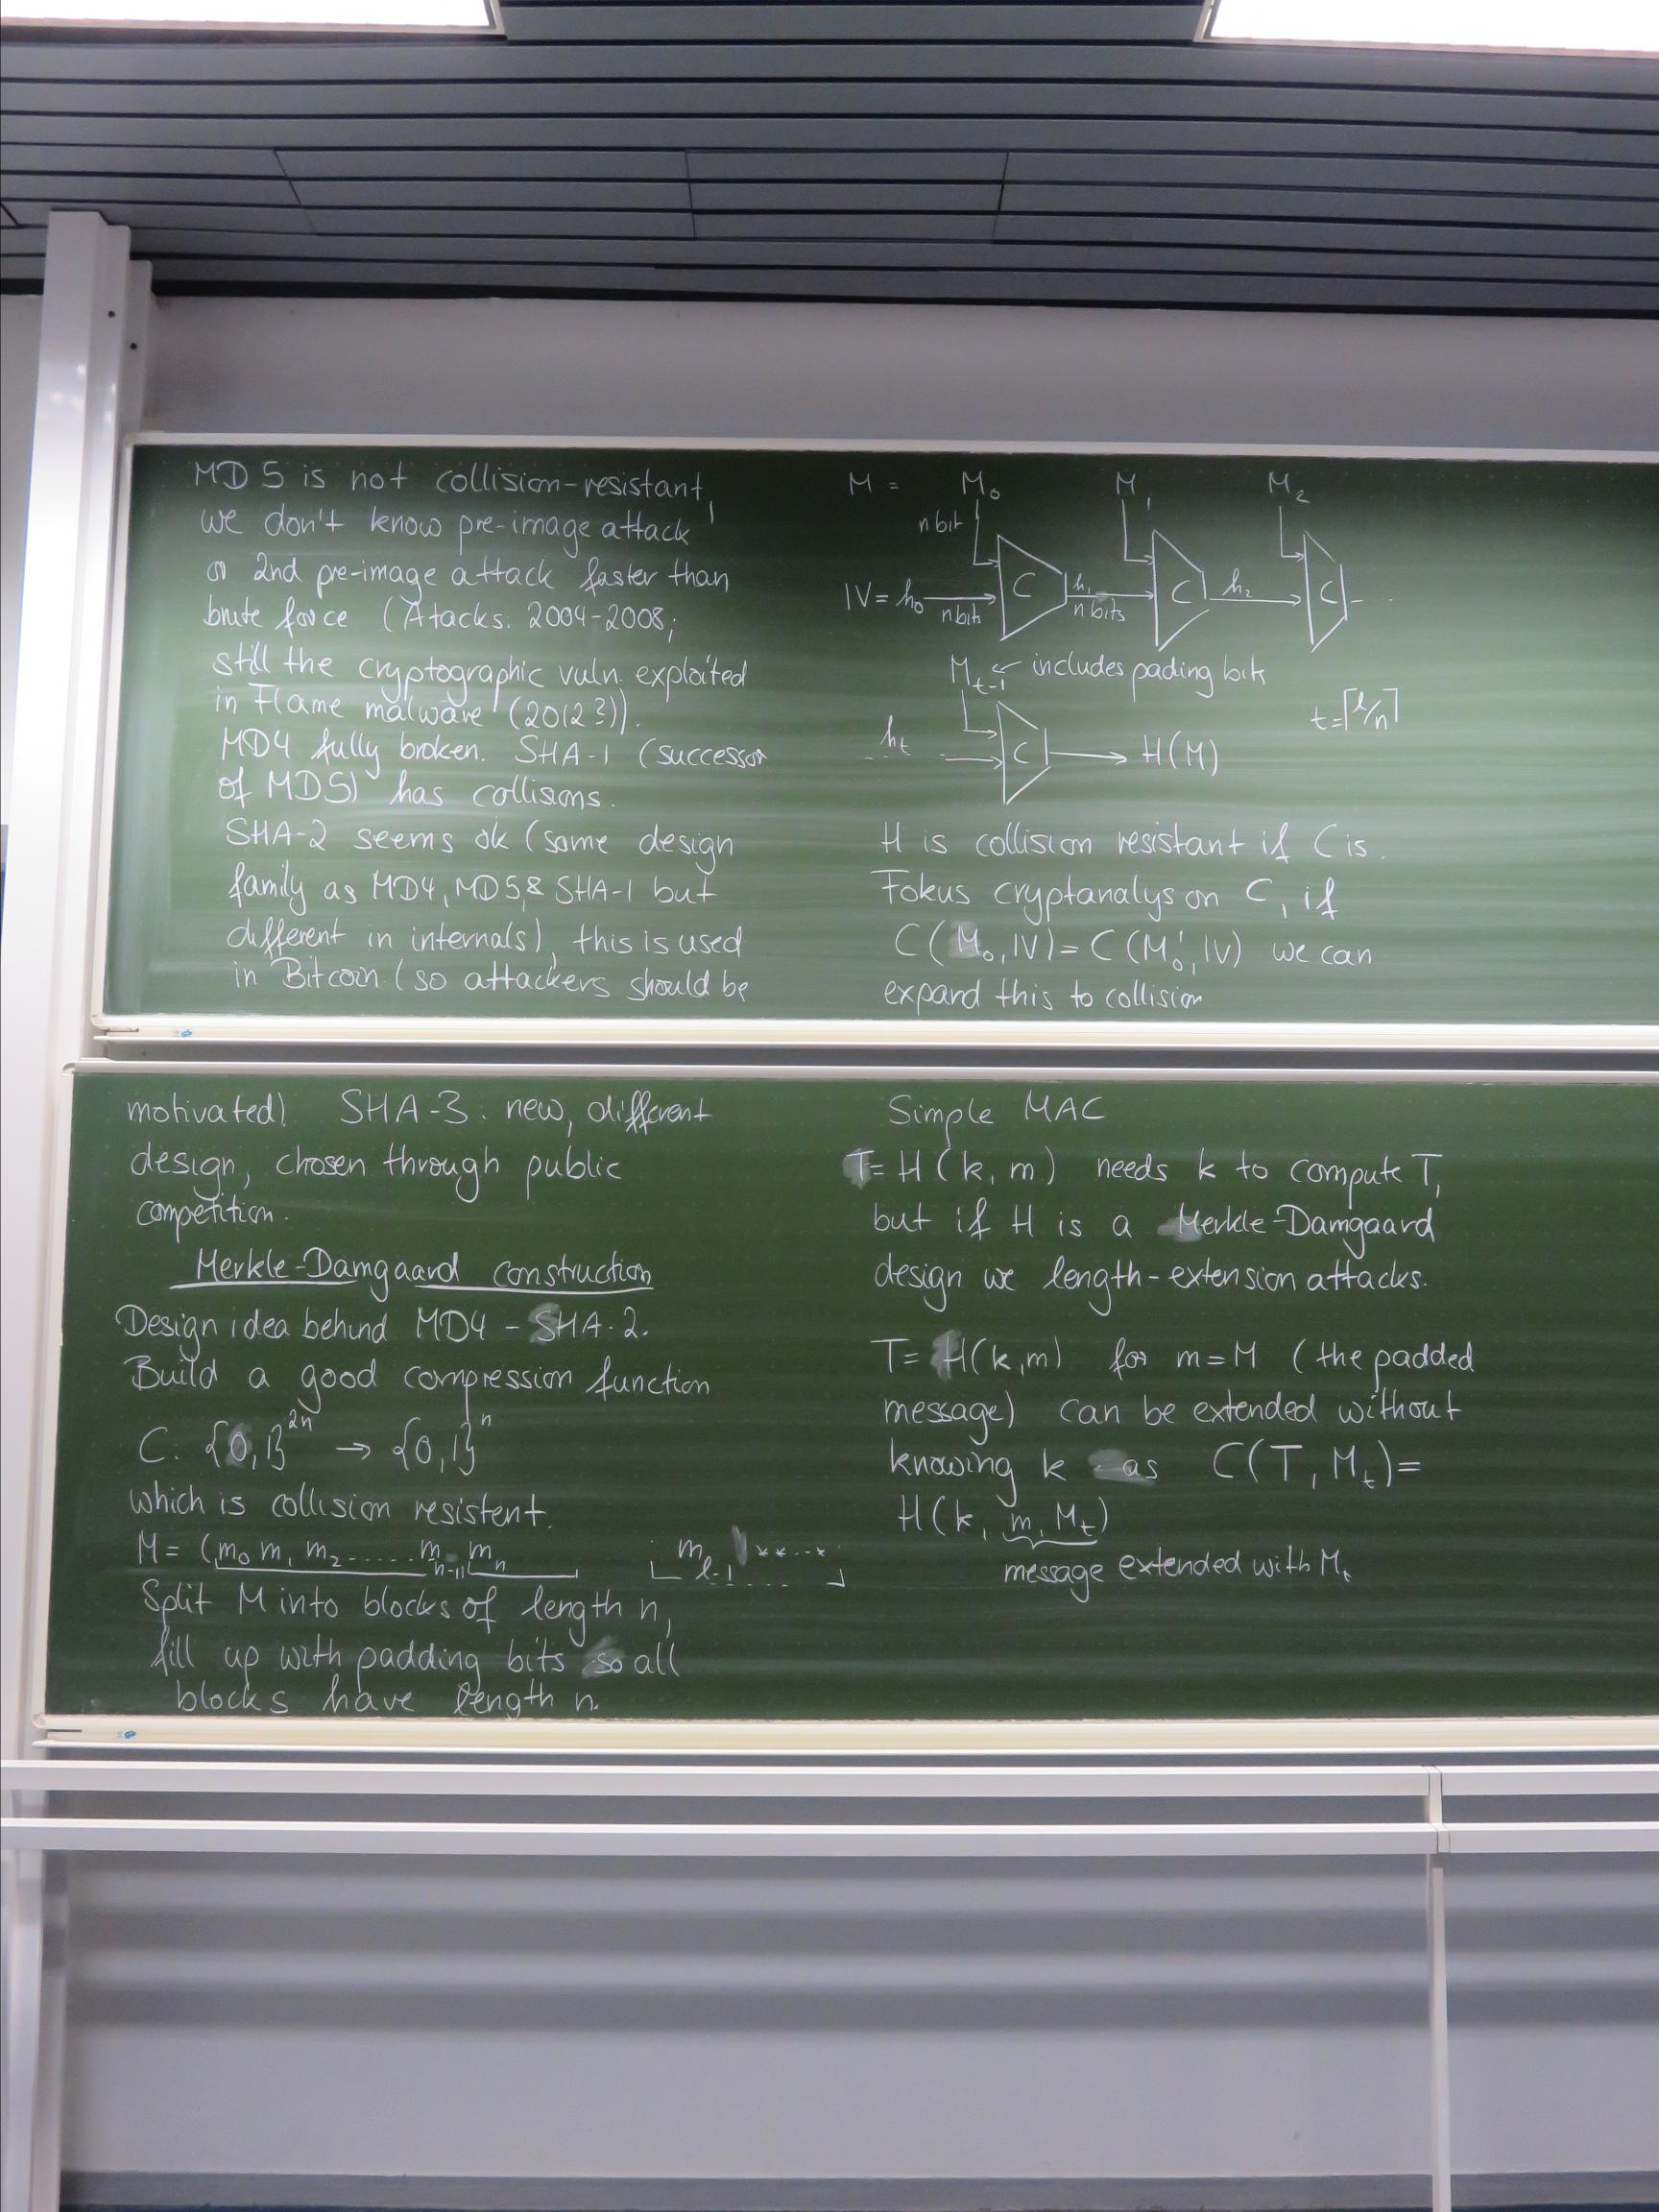 MD5 is not collision-resistant,
we don't know pre-image attack
or 2nd pre-image attack faster than
brute force (Atacks: 2004-2008;
still the cryptographic vuln. exploited
in Flame malware (2012?)).
MD4 fully broken. SHA-1 (successor
of MD5) has collisions.
SHA-2 seems ok (same design
family as MD4, MD5, & SHA-1 but
different in internals), this is used
in Bitcoin (so attackers should be
motivated) SHA-3: new, different
design, chosen through public
competition.
Merkle-Damgaard construction
Design idea behind MD4 - SHA-2.
Build a good compression function
C: {0,1}^2n → {0,1}^n
which is collision resistent.
M = (m_0 m_1 m_2 ...... m_n-1 m_n m_l-1 | **...*
Split M into blocks of length n,
fill up with padding bits so all
blocks have length n.
M = M_0 M_1 M_2
n bit
IV = h_0 n bits C h_1 n bits C h_2 C ...
M_t-1 ← includes pading bits
t = ⌈l/n⌉
h_t C → H(M)
H is collision resistant if C is.
Fokus cryptanalys on C, if
C(M_0, IV) = C(M_0', IV) we can
expand this to collision
Simple MAC
T = H(k, m) needs k to compute T,
but if H is a Merkle-Damgaard
design we length-extension attacks.
T = H(k,m) for m = M (the padded
message) can be extended without
knowing k as C(T, M_t) =
H(k, m, M_t)
message extended with M_t